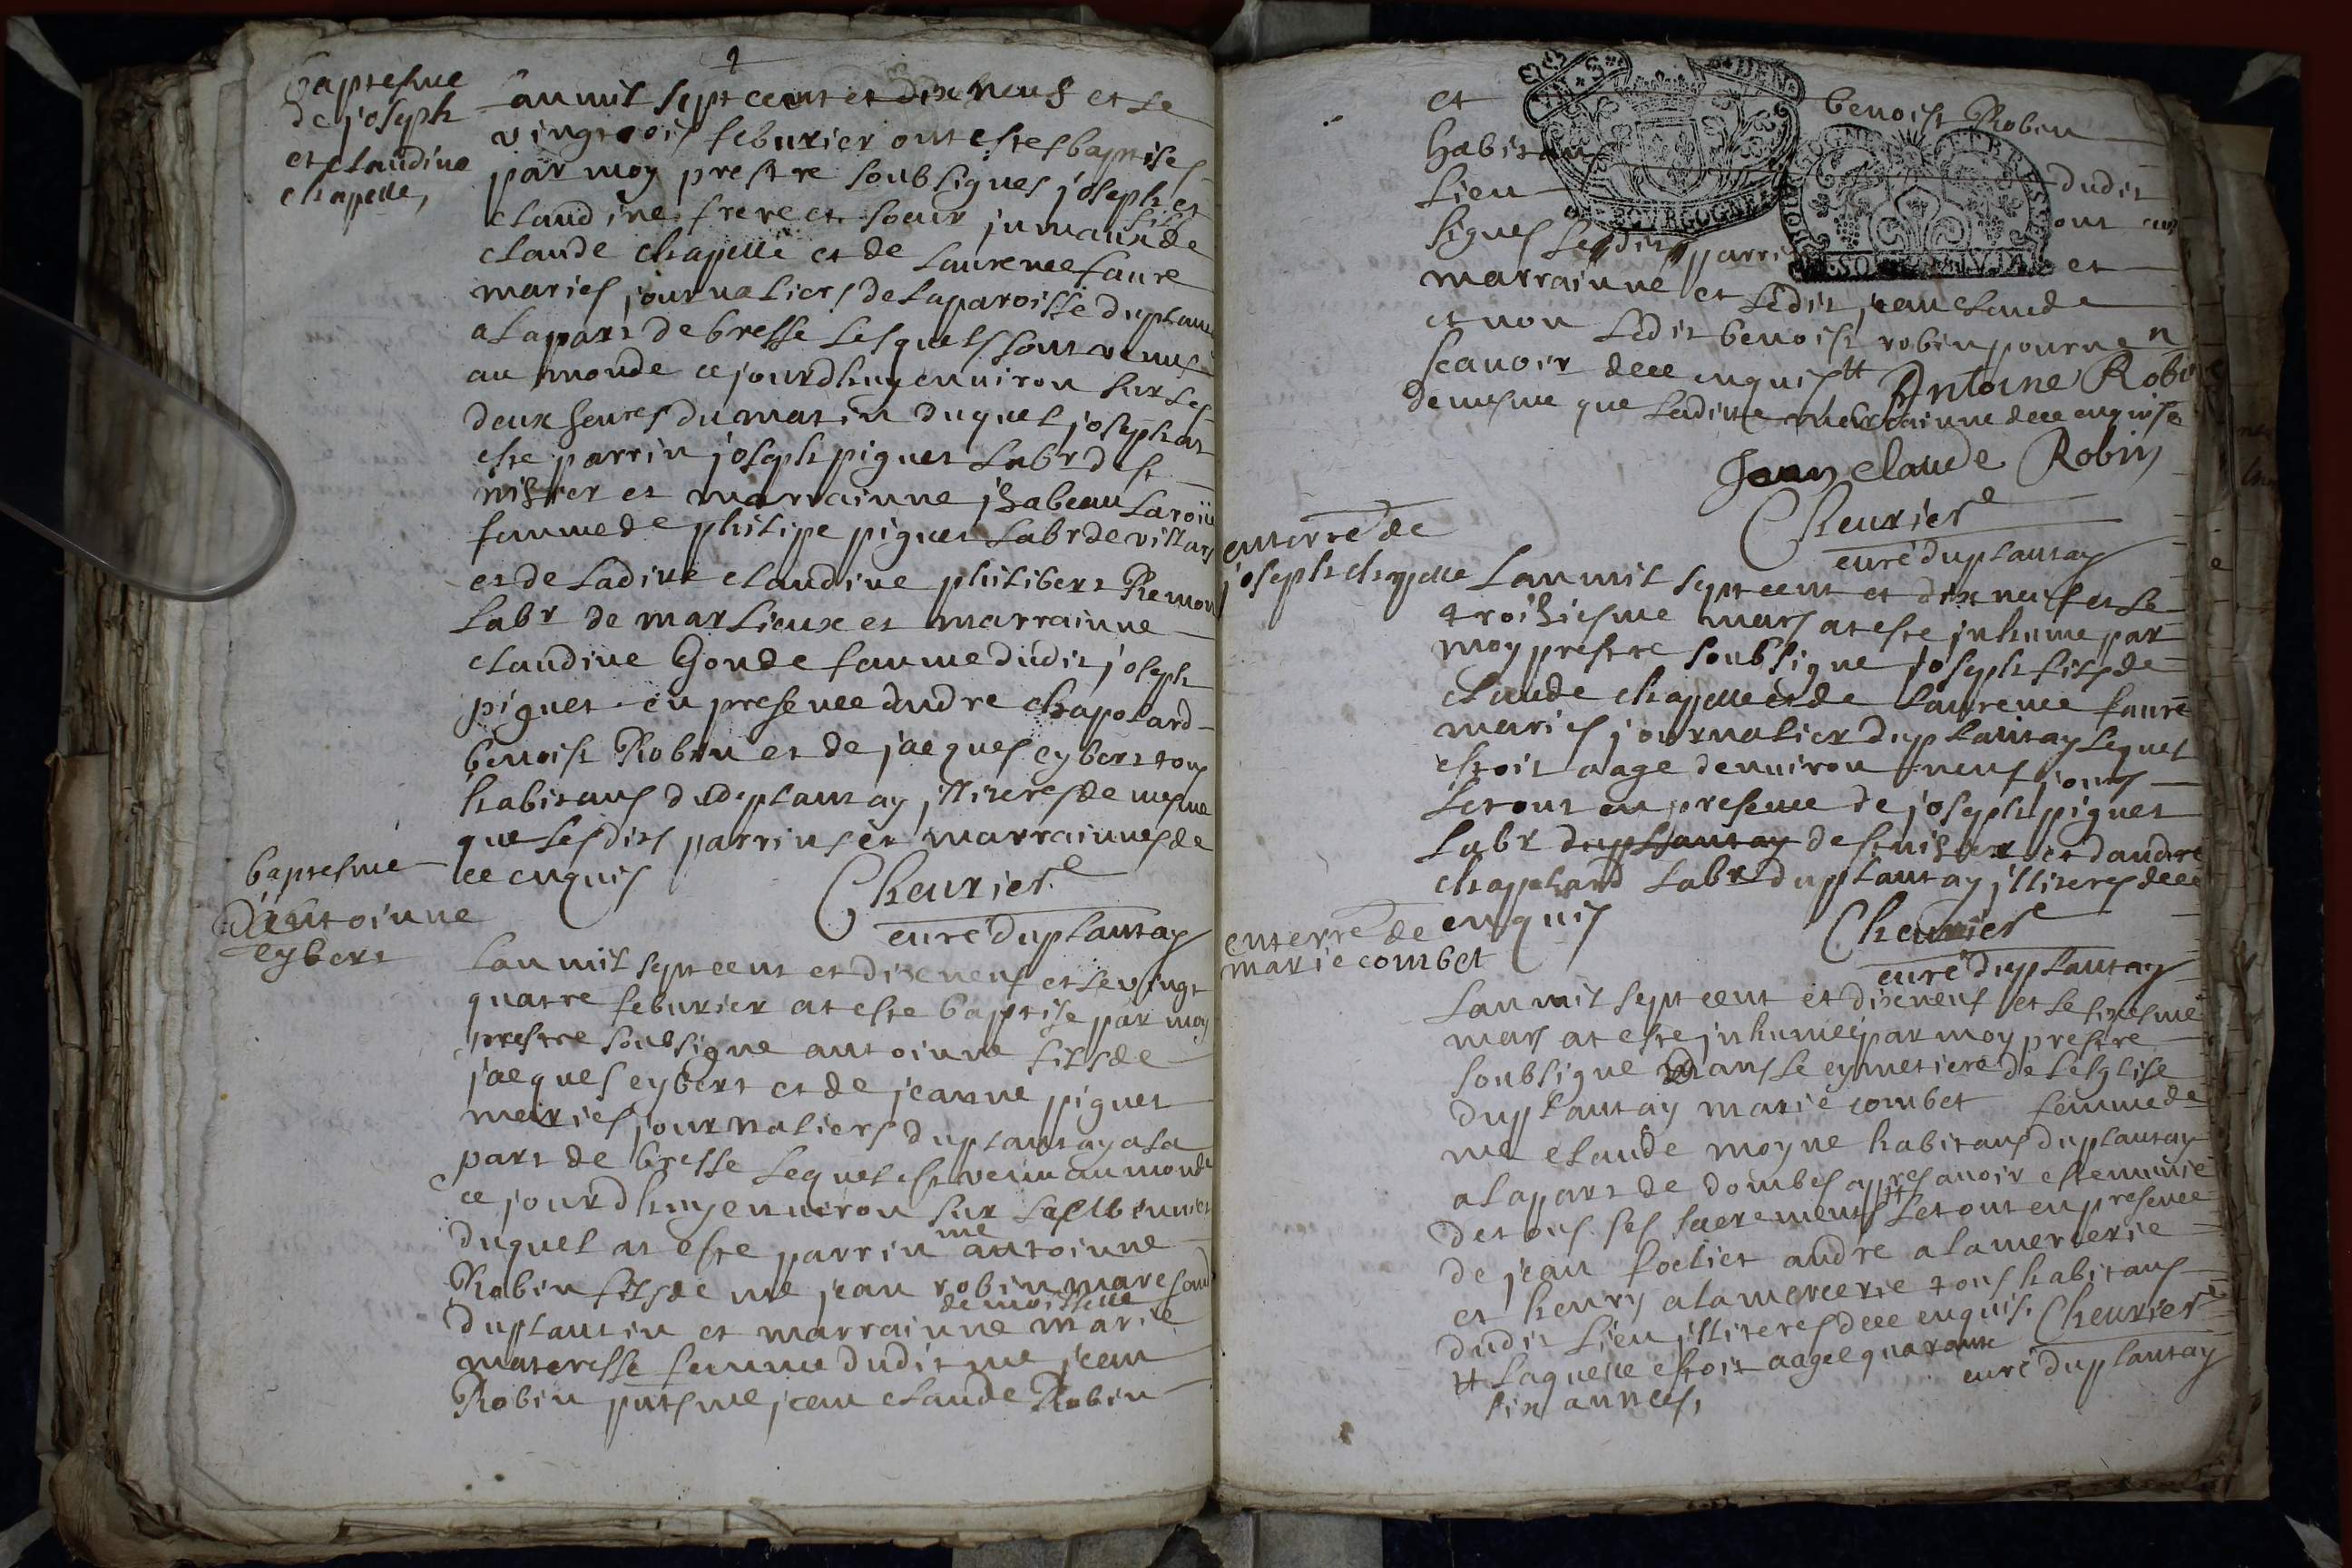 baptesme
de joseph
et claudine
chapelle,
Lan mil sept cent et dix neuf et le
vingtrois feburier ont estes baptises
par moy prestre soubsignes joseph et
claudine frere et soeur jumaux fils de
claude chapelle et de laurence faure
maries journaliers de la paroisse du plantay
a la part de bresse lesquels sont venus
au monde ce jourdhuy environ sur les
deux heures du matin duquel joseph at
este parrin joseph piguet labr dest
nisier et marrainne isabeau
femme de philipe piguet labr de villars
et de ladite claudine philibert Remon
labr de marlieux et marrainne
claudine Gonde famme dudit joseph
piguet en presence dandre chapolard
benoist Robin et de jacques eybert tous
habitans dud plantay illiteres de mesme
que lesdits parrins et marrainnes de
ce enquis
Cheurier
curé du plantay
baptesme
dantoinne
eybert
Lan mil sept cent et dixneuf et le vingt
quatre feburier at este baptise par moy
prestre soubsigne antoinne fils de
jacques eybert et de jeanne piguet
maries journaliers du plantay a la
part de bresse lequel est venu au monde
ce jourdhuy environ sur
duquel at este parrin me antoinne
Robin fils de me jean robin
du plantin et marrainne demoiselle marie
materesse femme dudit me jean
Robin me jean claude Robin
et benoist Robin
habitans
lieu dudit
signes ledit parrin ont
marrainne et ledit jean claude et
et non ledit benoist robin pour ne
scauoir dece enquis Antoine Robin
de mesme que ladite marrainne dece enquise
Jean claude Robin
Cheurier
curé du plantay
enterré de
joseph chapelle
Lan mil sept cent et dix neuf et le
troisiesme mars at este inhume par
moy prestre soubsigne joseph fils de
claude chapelle et de laurence faure
maries journalier du plantay lequel
estoit aage denuiron neuf jours
le tout en presence de joseph piguet
labr du plantay de st nisier et dandre
chapolard labr du plantay illiteres dece
enquis
Cheurier
curé du plantay
enterré de
marie combet
Lan mil sept cent et dixneuf et le sixiesme
mars at este inhumée par moy prestre
soubsigne dans le cymetiere de lesglise
du plantay marie combet femme de
me claude moyne habitans du plantay
a la part de dombes apres auoir este munie
de tous ses sacrements # le tout en presence
de jean andre alamercerie
et henry alamercerie tous habitans
dudit lieu illiteres dece enquis Cheurier
# laquelle estoit aagee quarante curé du plantay
six annees,
BOURGOGNE